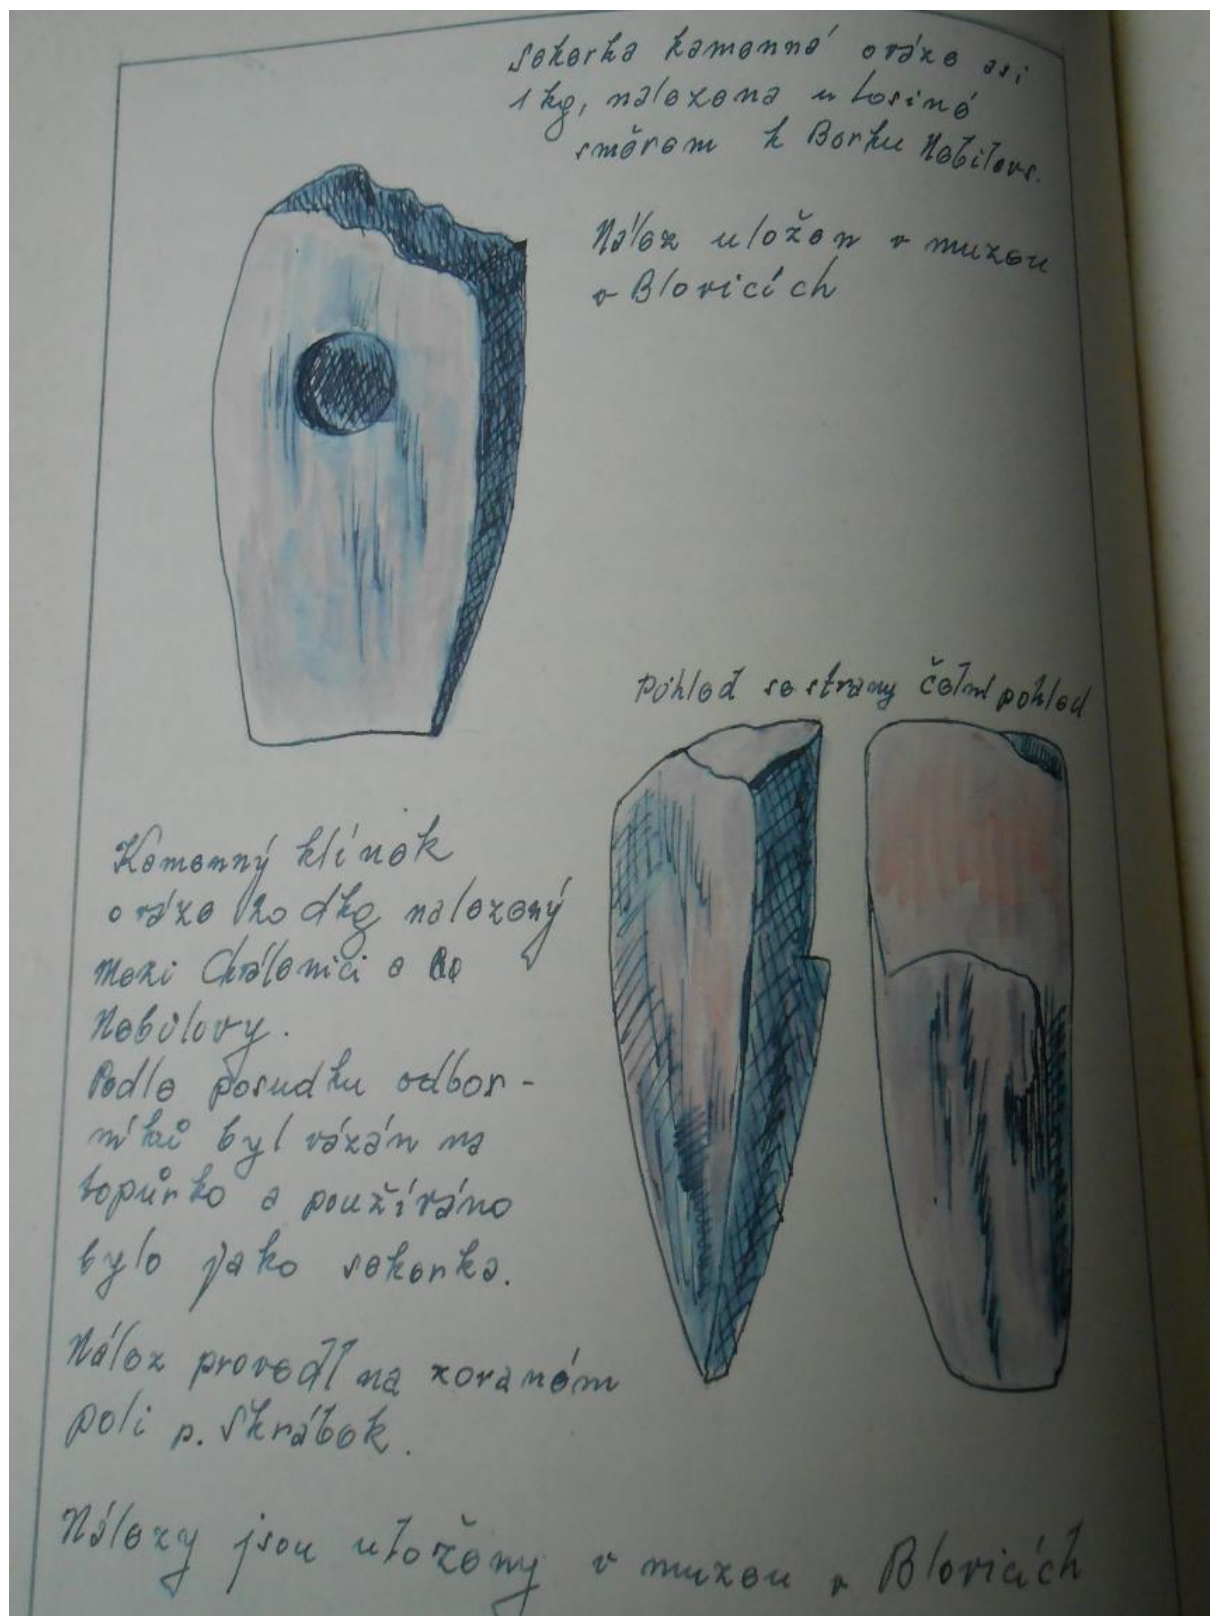 sekerka kamenná o váze asi
1 kg, nalezena u Losiné
směrem k Borku Nebílovs.
Nález uložen v muzeu
v Blovicích
Pohled se strany čelní pohled
Kamenný klínek
o váze 20 dkg nalezený
mezi Chválenici a
Nebílovy.
Podle posudku odbor-
níků byl vázán na
topůrko a používáno
bylo jako sekerka.
Nález provedl na zoraném
poli p. Skrábek.
Nálezy jsou uloženy v muzeu v Blovicích